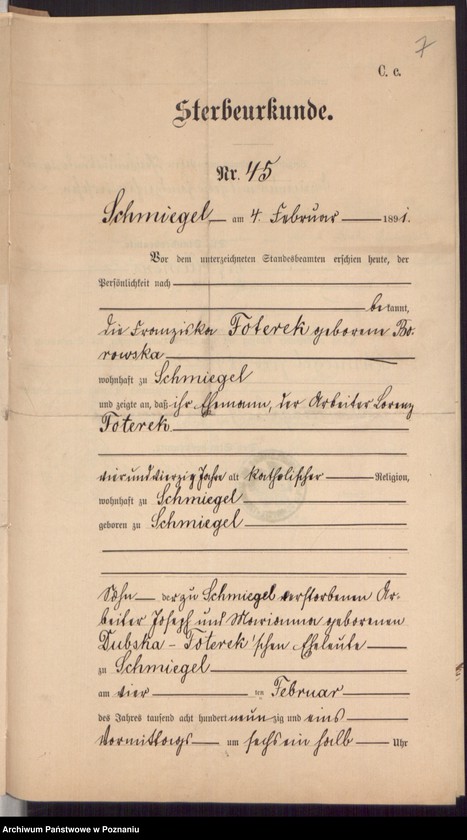 7
C. c.
Sterbeurkunde.
Nr. 45
Schmiegel am 4. Februar 1891.
Vor dem unterzeichneten Standesbeamten erschien heute, der
Persönlichkeit nach
bekannt,
die Franziska Foterek geborene Bo-
rowska
wohnhaft zu Schmiegel
und zeigte an, daß ihr Ehemann, der Arbeiter Lorenz
Foterek
vierundvierzig Jahre alt katholischer Religion,
wohnhaft zu Schmiegel
geboren zu Schmiegel
Sohn der zu Schmiegel verstorbenen Ar-
beiter Joseph und Marianna geborenen
Dubska - Foterek'schen Eheleute
zu Schmiegel
am vier ten Februar
des Jahres tausend acht hundert neunzig und eins
Vormittags um sechs ein halb Uhr
Archiwum Państwowe w Poznaniu